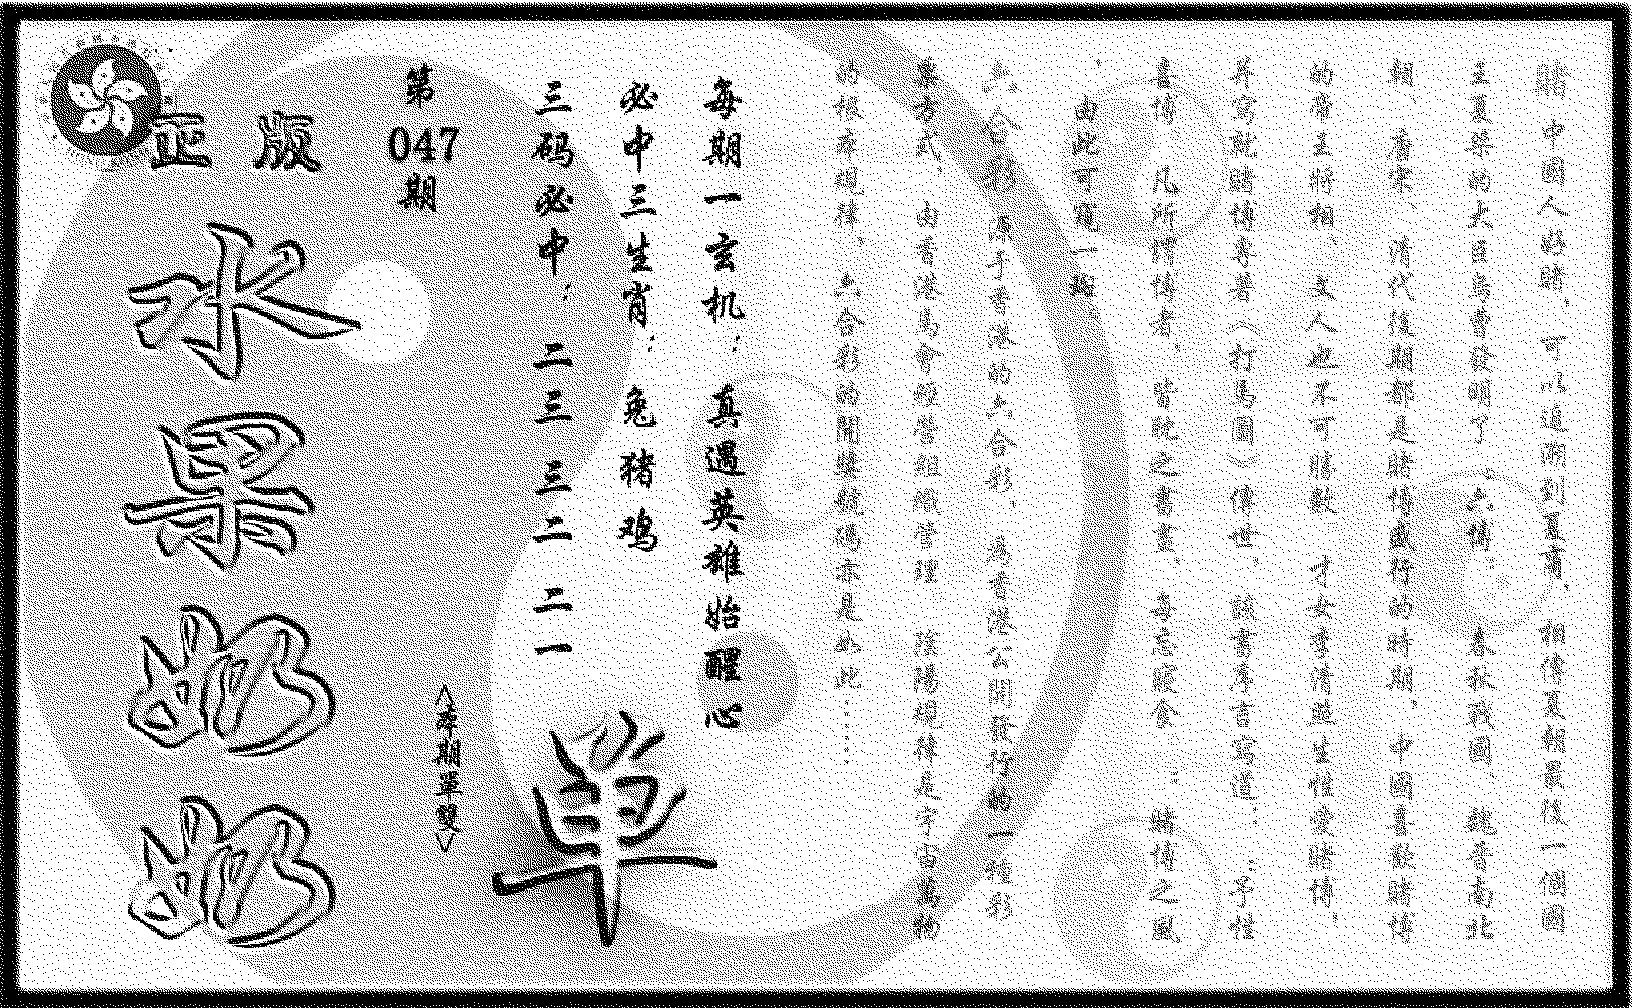 賭 中國人好賭，可以追溯到夏商，相傳夏朝最後一個國
王夏桀的大臣烏曹發明了“六博”. 春秋戰國、魏晉南北
朝 唐宋、清代後期都是賭博盛行的時期，中國喜歡賭博
的帝王將相 文人也不可勝數 才女李清照生性愛賭博，
并寫就賭博專著《打馬圖》傳世，該書序言寫道：“予性
喜博 凡所謂博者，皆耽之書畫，每忘寢食”：賭博之風
，由此可窺一斑
六合彩 源于香港的六合彩，為香港公開發行的一種彩
票方式，由香港馬會經營組織管理 陰陽規律是宇宙萬物
的根本規律，六合彩的開獎號碼亦是如此……
每期一玄机：真遇英雄始醒心
必中三生肖：兔猪鸡
三码必中：二三 三二 二一
單
第
047
期
<每期單雙>
正版
水果奶奶